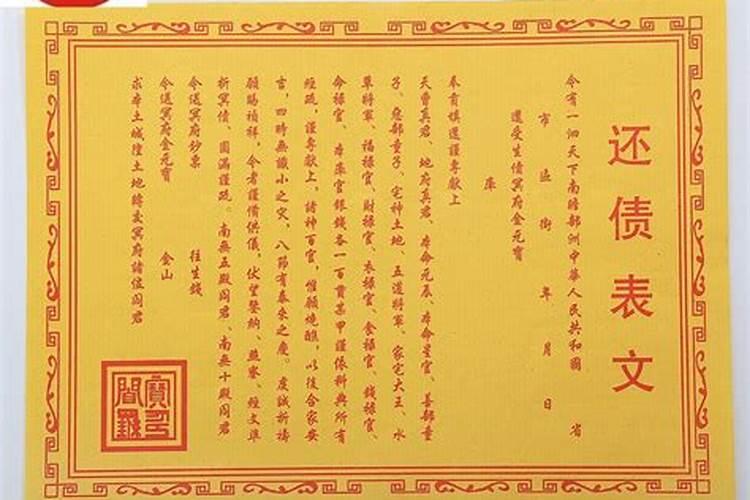 还债表文
今有一泗天下南瞻部洲中華人民共和國 省
市 區 街 年 月 日
還受生債冥府金元寶
庫
奉育填還謹專獻上
天曹真君、地府真君、本命元辰、本命星官、善部童
子、惡部童子、宅神土地、五道將軍、家宅大王、水
草將軍、福禄官、財禄官、衣禄官、食禄官、錢禄官、
命禄官、本庫官銀錢各一百貫某甲謹依科典所有
經疏，謹專獻上，諸神百官，惟願燒醮，以後合家安
吉，四時無纖小之灾，八節有泰來之慶。虔誠祈禱
願賜禎祥，令者謹備供儀，伏望鑒納、照察、經文準
折冥債、圓滿謹疏。南無五殿阎君、南無十殿阎君
今送冥府鈔票 往生錢
今送冥府金元寶 金山
求本土城隍土地轉交冥府諸位阎君